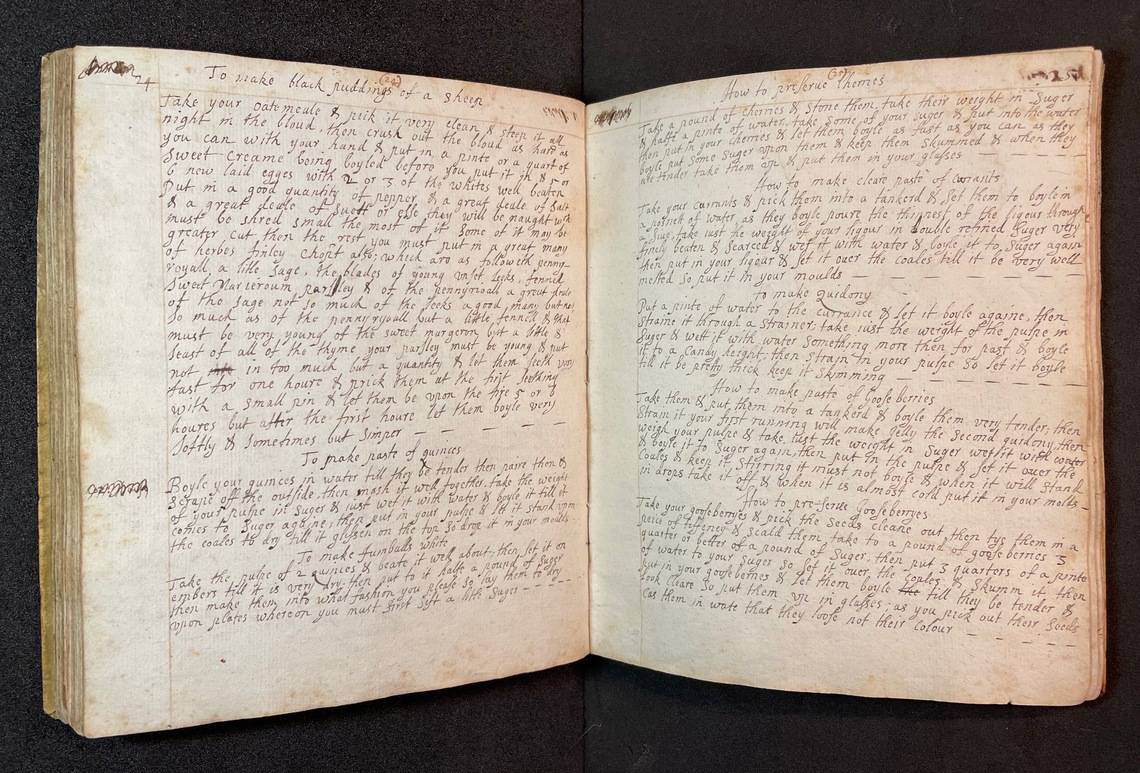 24
To make black puddings of a sheep
(24)
Take your oatemeale & pick it very clean & steep it all
night in the bloud, then crush out the bloud as hard as
you can with your hand & put in a pinte or a quart of
Sweet creame being boyled before you put it in & 5 or
6 new laid egges with 2 or 3 of the whites well beaten
Put in a good quantity of pepper & a great deale of Salt
& a great deale of Suett or else they will be naught
must be shred small the most of it Some of it may be
greater cut then the rest you must put in a great many
of herbes finley chopt also, which are as followeth penny
royall, a litle Sage, the blades of young unset leeks, fennel
Sweet Marieroum parsley & of the pennyrioall a great deale
of the Sage not so much of the leeks a good many but not
So much as of the pennyryoall but a little fennell &
must be very young of the sweet margeron but a little &
least of all of the thyme your parsley must be young & put
not in too much but a quantity & let them seeth very
fast for one houre & prick them at the first seething
with a small pin & let then be upon the fire 5 or 6
houres but after the first houre let them boyle very
softly & sometimes but simper
To make paste of quinces
Boyle your quinces in water till they be tender then parre them &
scrape of the outside, then mash it well together, take the weight
of your pulpe in Suger & just wet it with water & boyle it till it
comes to Suger againe, then put in your pulpe & let it stand upon
the coales to dry till it glissen on the top, So drop it in your moulds
To make Jumballs white
Take the pulpe of 2 quinces & beate it well about, then set it on
embers till it is very dry, then put to it halfe a pound of Suger
then make them into what fashion you please So lay them to dry
upon plates whereon you must first sift a litle Suger
25
How to preserve Cherries
Take a pound of cherries & stone them, take their weight in Suger
& halfe a pinte of water, take some of your Suger & put into the water
then put in your cherries & let them boyle as fast as you can as they
boyle put some Suger upon them & keep them skummed & when they
are tender take them up & put them in your glasses
How to make cleare paste of Currants
Take your currants & pick them into a tankerd & set them to boyle in
a posnett of water, as they boyle poure the thinnest of the liqour through
a sive, take iust the weight of your liqour in double refined Suger very
finely beaten & searced & wet it with water & boyle it to Suger again
then put in your liqour & set it over the coales till it be very well
melted So put it in your moulds
To make Quidony
Put a pinte of water to the currance & let it boyle againe, then
straine it through a strainer, take iust the weight of the pulpe in
Suger & wet it with water something more then for past & boyle
it to a Candy height, then strain in your pulpe So let it boyle
till it be pretty thick keep it skimming
How to make paste of Goosberries
Take them & put them into a tankerd & boyle them very tender, then
Strain it your first running will make Jelly the second quidony, then
weigh your pulpe & take iust the weight in Suger wet it with water
& boyle it to Suger again, then put in the pulpe & set it over the
Coales & keep it stirring it must not boyle & when it will stand
in drops take it off & when it is almost cold put it in your molds
How to preserve gooseberryes
Take your gooseberryes & pick the seeds cleare out, then tye them in a
peice of tiffeney & scald them, take to a pound of gooseberries 3
quarter or better of a pound of Suger, then put 3 quarters of a pinte
of water to your Suger So set it over the coales & skumm it, then
put in your gooseberries & let them boyle till they be tender &
look cleare So put them up in glasses, as you pick out their seeds
Cas them in wate that they loose not their Colour